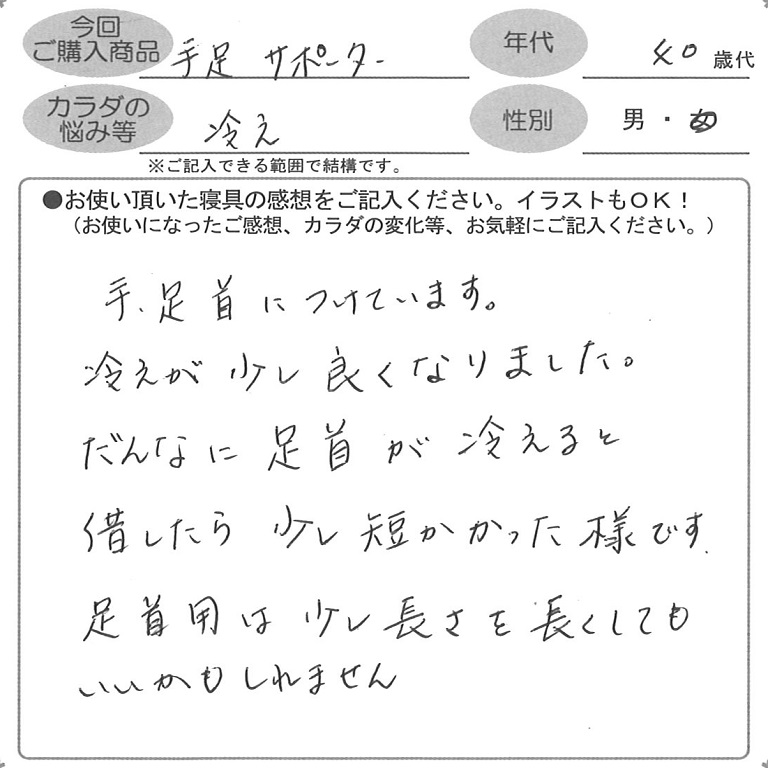 今回
ご購入商品
手足 サポーター
年代
40 歳代
カラダの
悩み等
冷え
性別
男・女
※ご記入できる範囲で結構です。
●お使い頂いた寝具の感想をご記入ください。イラストもOK！
（お使いになったご感想、カラダの変化等、お気軽にご記入ください。）
手、足首につけています。
冷えが少し良くなりました。
だんなに足首が冷えると
借したら少し短かかった様です.
足首用は少し長さを長くしても
いいかもしれません